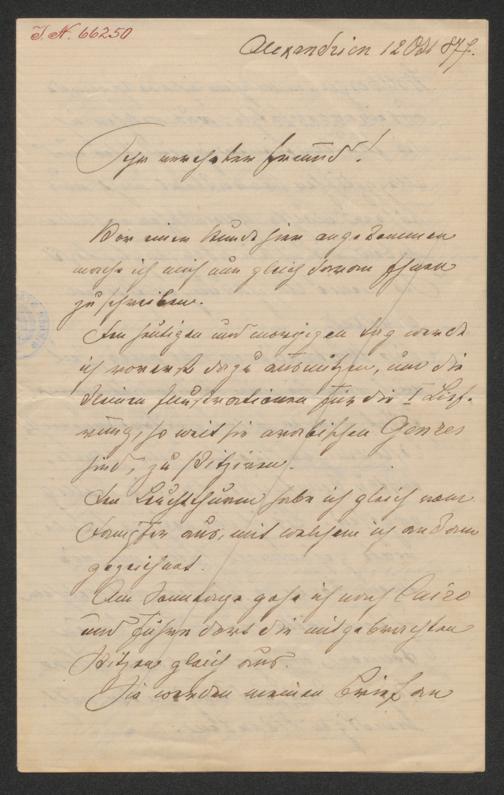 J. N. 66250
Alexandrien 12 Okt 87
Sehr verehrter Freund!
Vor einer Stunde hier angekommen
mache ich mich nun gleich daran Ihnen
zu schreiben.
Den heutigen und morgigen Tag werde
ich vorerst dazu ausnützen, um die
kleinen Illustrationen für die 1 Lief-
rung, so weit sie arabischen Genres
sind, zu skizziren.
Den Leuchtthurm habe ich gleich vom
Dampfer aus, mit welchem ich ankam
gezeichnet.
Am Sonntage gehe ich nach Cairo
und führe dort die mitgebrachten
Skizzen gleich aus.
Sie werden meinen Brief an